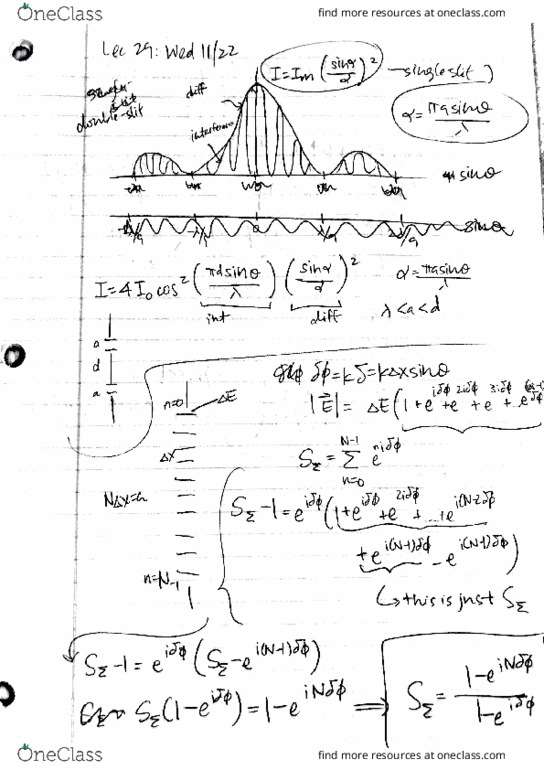 OneClass
find more resources at oneclass.com
Lec 29: Wed 11/22
I = Im (sinα/α)² - single slit
double-slit
diff
interference
α = πa sinθ/λ
sinθ
0
I = 4I₀cos²(πd sinθ/λ) (sinα/α)²
int
diff
α = πa sinθ/λ
λ < a < d
a
d
a
δφ = kδ = kΔx sinθ
n=0
ΔE
|E⃗| = ΔE(1 + e^{iδφ} + e^{2iδφ} + e^{3iδφ} + ... e^{i(N-1)δφ}
Δx
S_Σ = Σ_{n=0}^{N-1} e^{niδφ}
NΔx = a
S_Σ - 1 = e^{iδφ}(1 + e^{iδφ} + e^{2iδφ} + ... + e^{i(N-2)δφ}
+ e^{i(N-1)δφ} - e^{i(N-1)δφ})
n=N-1
↳ this is just S_Σ
S_Σ - 1 = e^{iδφ}(S_Σ - e^{i(N-1)δφ})
S_Σ(1 - e^{iδφ}) = 1 - e^{iNδφ} ⇒ S_Σ = 1 - e^{iNδφ} / 1 - e^{iδφ}
OneClass
find more resources at oneclass.com